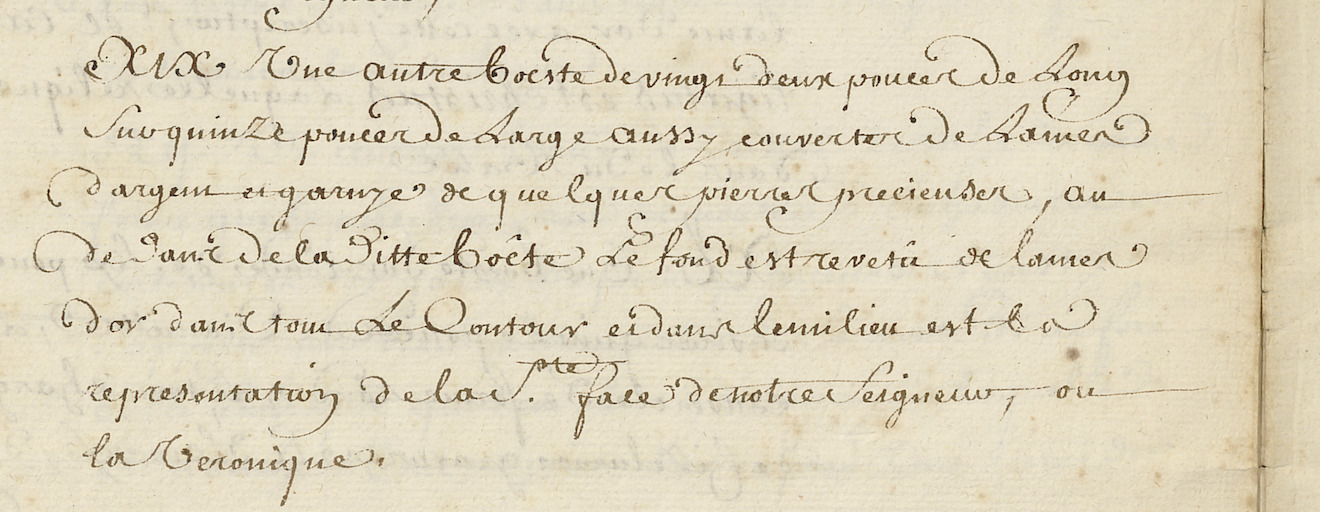 XIX Une autre boëste de vingt deux pouces de Long
Sur quinze pouces de Large aussy couverte de Lames
dargent et garnye de quelques pierres precieuses, au
dedans de la ditte boëte Le fond est revetû de lames
dor dans tout Le Contour et dans le milieu est la
representation de la S.pte face de notre Seigneur, ou
la Veronique.